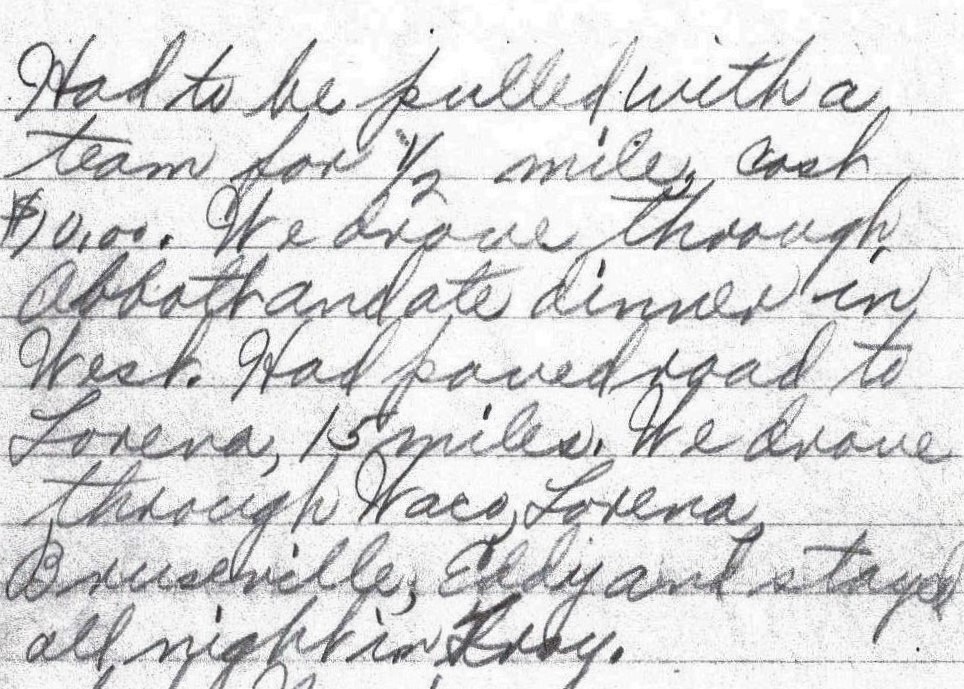 Had to be pulled with a
team for 1/2 mile, cost
$10.00. We drove through
Abbott and ate dinner in
West. Had paved road to
Lorena, 15 miles. We drove
through Waco, Lorena,
Bruseville, Eddy and stayed
all night in Troy.